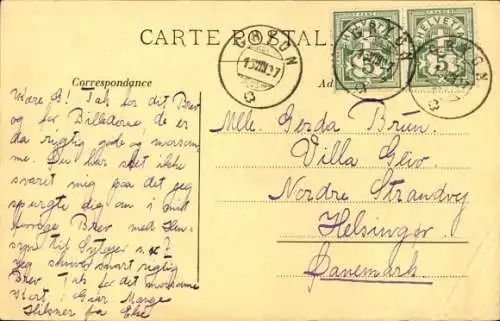 CARTE POSTALE
Correspondance
HELVETIA
5
HELVETIA
5
Kære G! Tak for dit Brev
og for Billederne, de er
da rigtig gode og morsom
me. Du har slet ikke
svaret mig paa det jeg
spurgte dig om i mit
forrige Brev med Hen-
syn til
jeg skriver snart rigtig
Brev. Tak for det morsomme
Kort i Gaar Mange
Hilsner fra Else
Mlle. Gerda Bruun.
Villa
Nordre Strandvej
Helsingør.
Danemark.